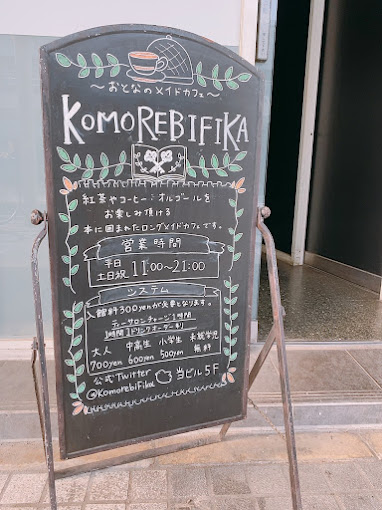 ～おとなのメイドカフェ～
KOMOREBIFIKA
紅茶やコーヒー、オルゴールを
お楽しみ頂ける
本に囲まれたロングメイドカフェです。
営業時間
平日
土日祝 11:00～21:00
システム
入館料300yenが必要となります。
ティーサロンチャージ1時間
1時間1ドリンクオーダー制
大人 中高生 小学生 未就学児
700yen 600yen 500yen 無料
公式Twitter
@Komorebifika 当ビル5F